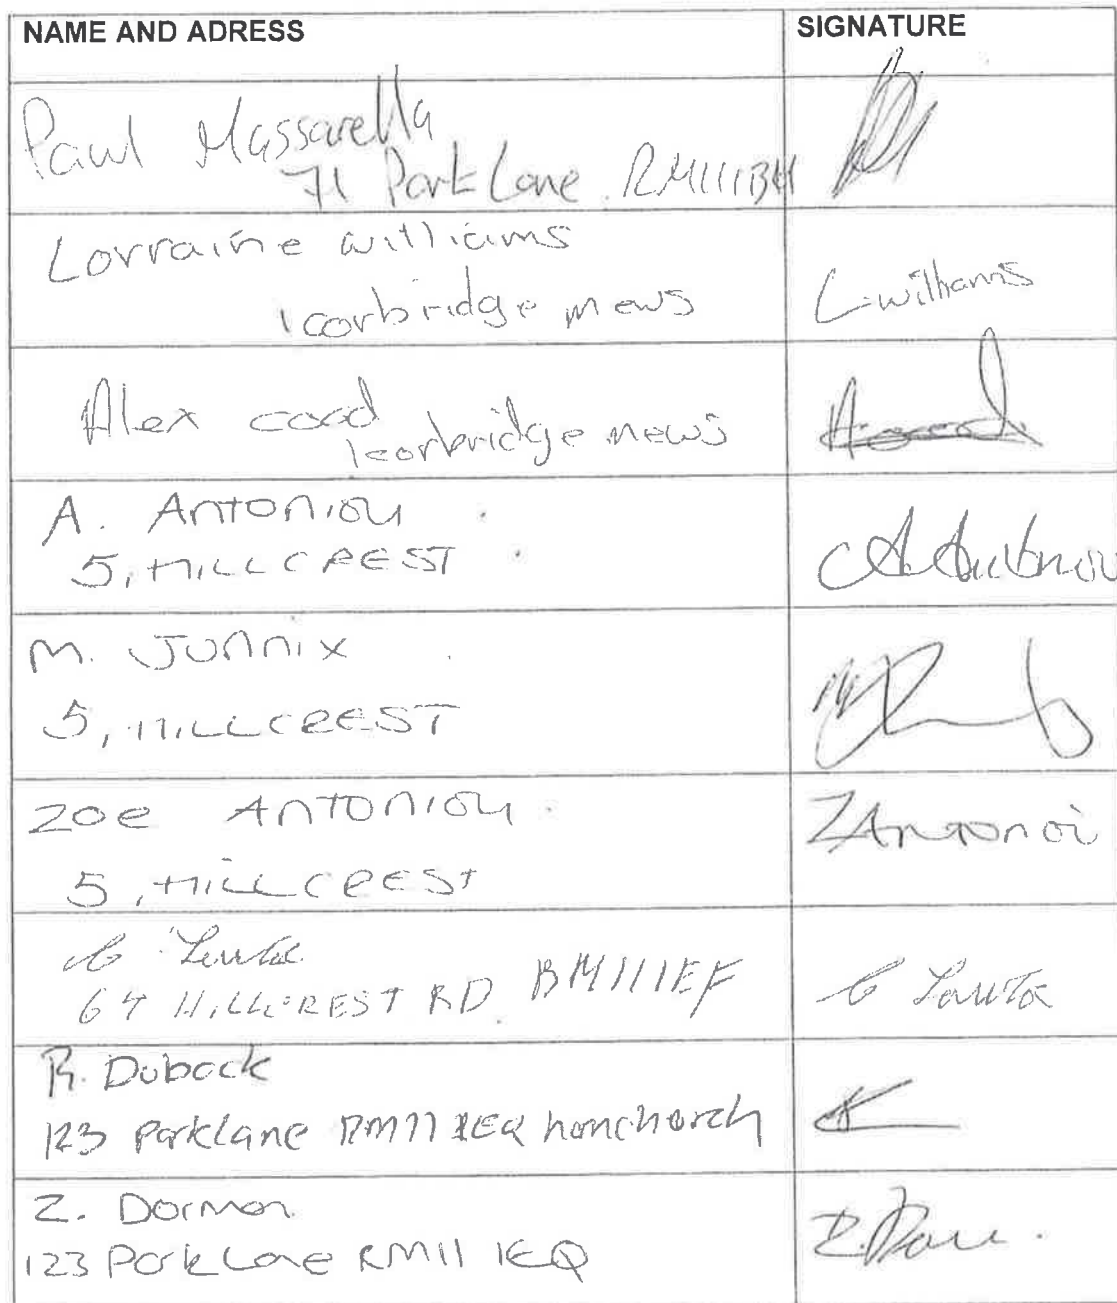 NAME AND ADRESS
SIGNATURE
Paul Massarella
71 Park Lane. RM111BH
Lorraine williams
1 corbridge mews
L williams
Alex coad
1 corbridge mews
A. Antoniou
5, HILLCREST
A. Antoniou
M. Junnix
5, HILLCREST
Zoe Antoniou
5, HILLCREST
ZAntonoi
64 HILLCREST RD. RM111EF
R. Duback
123 Parklane RM11 1EQ hornchurch
Z. Dorman
123 Park Lane RM11 1EQ